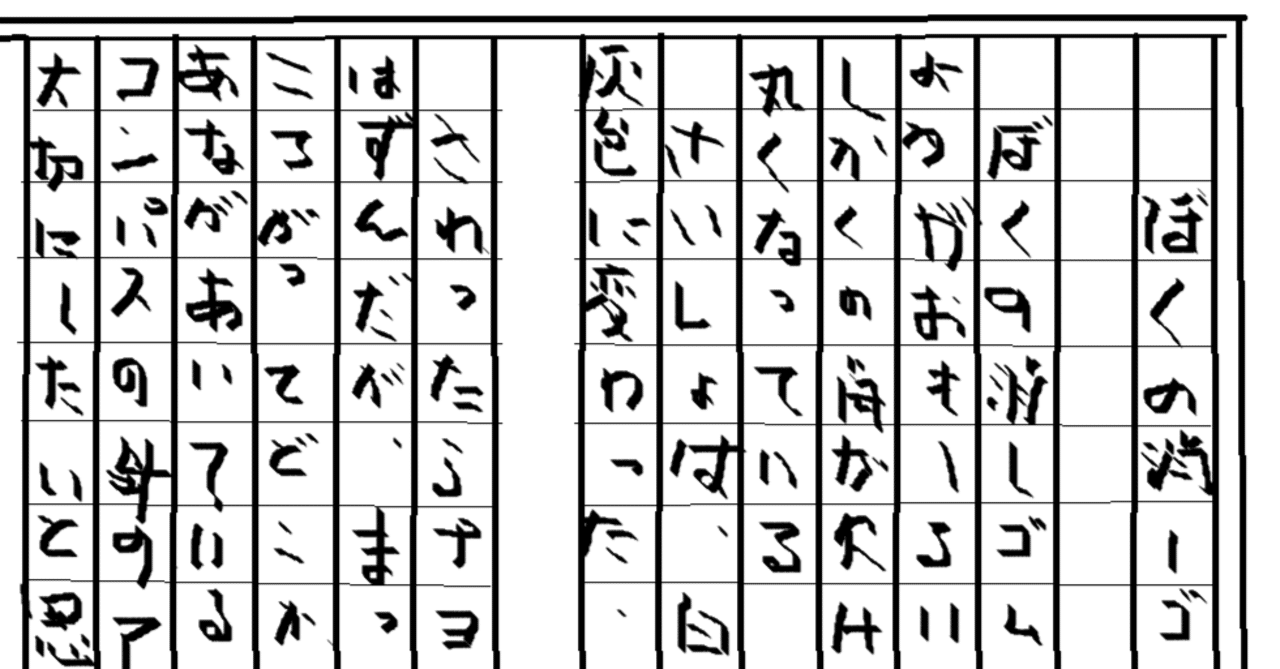 ぼくの消しゴ
ぼくの消しゴム
よのがおもしろい
しかくの角が欠け
丸くなっている
さいしょは、白
灰色に変わった、
さわったらチヨ
はずんだが、まっ
ころがってどこか
あながあいている
コンパスの針のア
大切にしたいと思